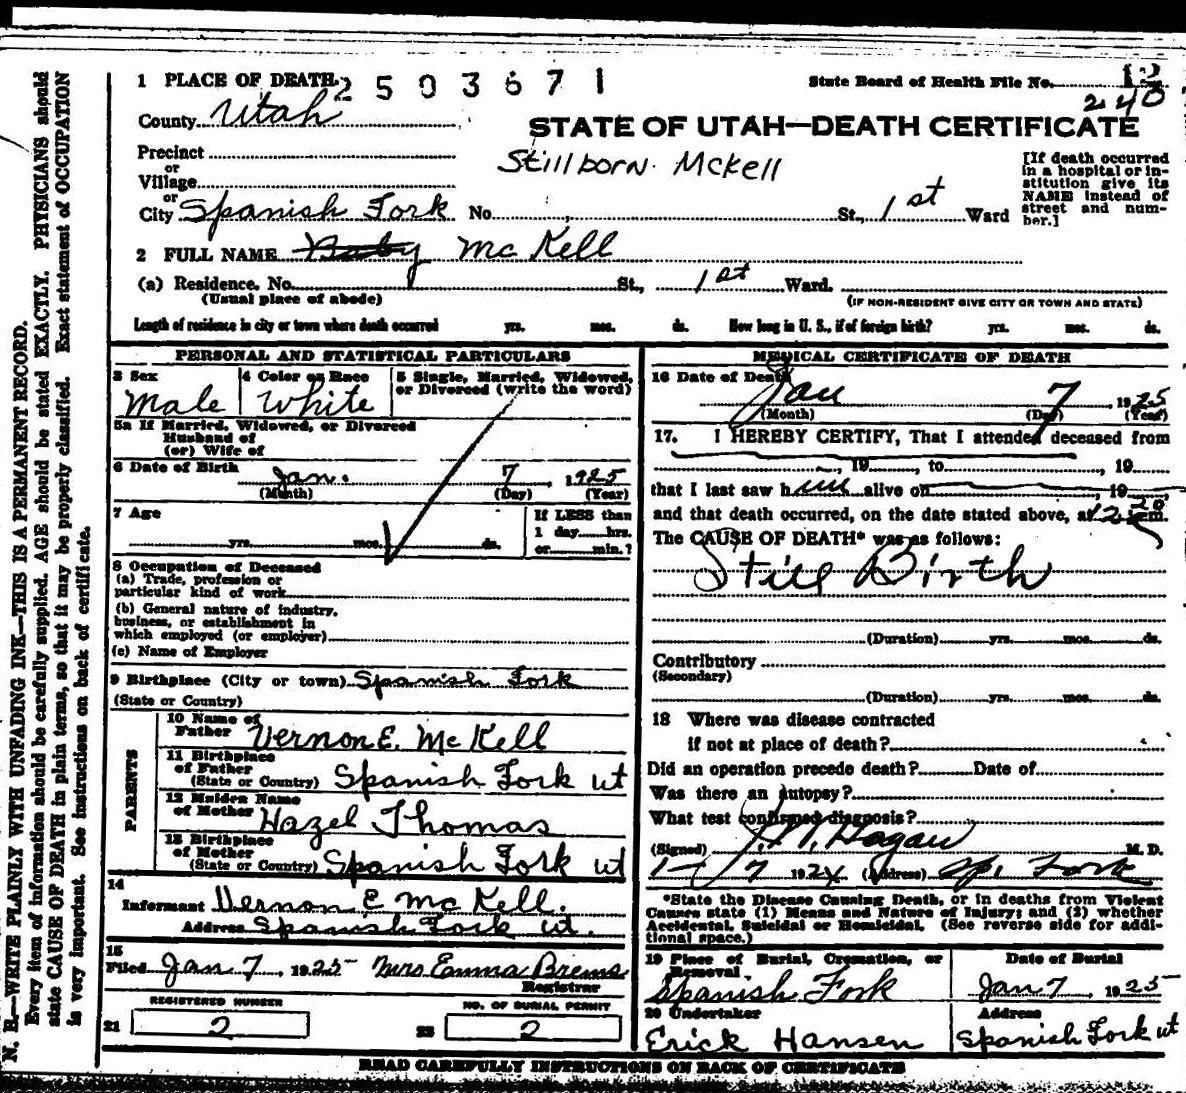 1 PLACE OF DEATH 2503671
State Board of Health File No. 12
240
County Utah
STATE OF UTAH—DEATH CERTIFICATE
Precinct
or
Village
or
City Spanish Fork No. St., 1st Ward
Stillborn McKell
[If death occurred
in a hospital or in-
stitution give its
NAME instead of
street and num-
ber.]
2 FULL NAME Baby Mc Kell
(a) Residence. No. St., 1st Ward.
(Usual place of abode)
(IF NON-RESIDENT GIVE CITY OR TOWN AND STATE)
Length of residence in city or town where death occurred yrs. mos. ds. How long in U. S., if of foreign birth? yrs. mos. ds.
PERSONAL AND STATISTICAL PARTICULARS
3 Sex
Male
4 Color or Race
White
5 Single, Married, Widowed,
or Divorced (write the word)
5a If Married, Widowed, or Divorced
Husband of
(or) Wife of
6 Date of Birth
Jan. 7, 1925
(Month) (Day) (Year)
7 Age
yrs. mos. ds.
If LESS than
1 day hrs.
or min.?
8 Occupation of Deceased
(a) Trade, profession or
particular kind of work
(b) General nature of industry,
business, or establishment in
which employed (or employer)
(c) Name of Employer
9 Birthplace (City or town) Spanish Fork
(State or Country)
PARENTS
10 Name of
Father Vernon E. Mc Kell
11 Birthplace
of Father
(State or Country) Spanish Fork ut
12 Maiden Name
of Mother Hazel Thomas
13 Birthplace
of Mother
(State or Country) Spanish Fork ut
14
Informant Vernon E Mc Kell.
Address Spanish Fork ut.
15
Filed Jan 7, 1925 Mrs Emma Brems
Registrar
REGISTERED NUMBER
21 2
NO. OF BURIAL PERMIT
22 2
MEDICAL CERTIFICATE OF DEATH
16 Date of Death
Jan 7, 1925
(Month) (Day) (Year)
17. I HEREBY CERTIFY, That I attended deceased from
, 19 , to , 19
that I last saw him alive on , 19
and that death occurred, on the date stated above, at 12 20 m.
The CAUSE OF DEATH* was as follows:
Still Birth
(Duration) yrs. mos. ds.
Contributory
(Secondary)
(Duration) yrs. mos. ds.
18 Where was disease contracted
if not at place of death?
Did an operation precede death? Date of
Was there an autopsy?
What test confirmed diagnosis?
(Signed) Hagan M. D.
1-7 1924 (Address) Sp. Fork
*State the Disease Causing Death, or in deaths from Violent
Causes state (1) Means and Nature of Injury; and (2) whether
Accidental, Suicidal or Homicidal. (See reverse side for addi-
tional space.)
19 Place of Burial, Cremation, or
Removal.
Spanish Fork
Date of Burial
Jan 7, 1925
20 Undertaker
Erick Hansen
Address
Spanish Fork ut
READ CAREFULLY INSTRUCTIONS ON BACK OF CERTIFICATE
N. B.—WRITE PLAINLY WITH UNFADING INK—THIS IS A PERMANENT RECORD.
Every item of information should be carefully supplied. AGE should be stated EXACTLY. PHYSICIANS should
state CAUSE OF DEATH in plain terms, so that it may be properly classified. Exact statement of OCCUPATION
is very important. See instructions on back of certificate.